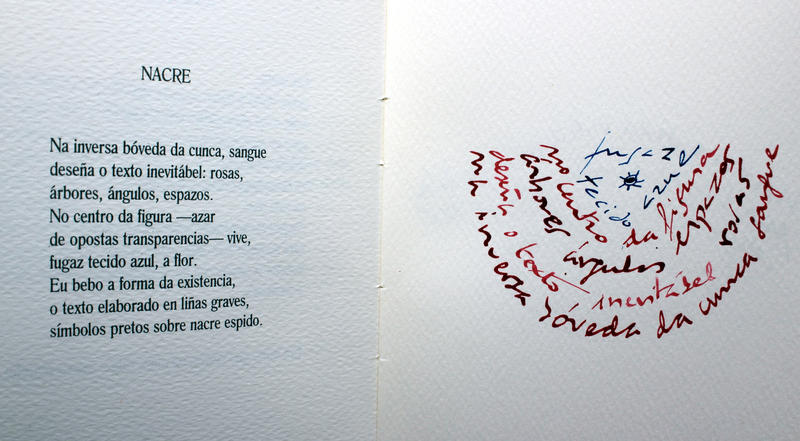 NACRE
Na inversa bóveda da cunca, sangue
deseña o texto inevitábel: rosas,
árbores, ángulos, espazos.
No centro da figura —azar
de opostas transparencias— vive,
fugaz tecido azul, a flor.
Eu bebo a forma da existencia,
o texto elaborado en liñas graves,
símbolos pretos sobre nacre espido.
na inversa bóveda da cunca sangue
deseña o texto inevitábel rosas
árbores ángulos espazos
no centro da figura
fugaz tecido azul